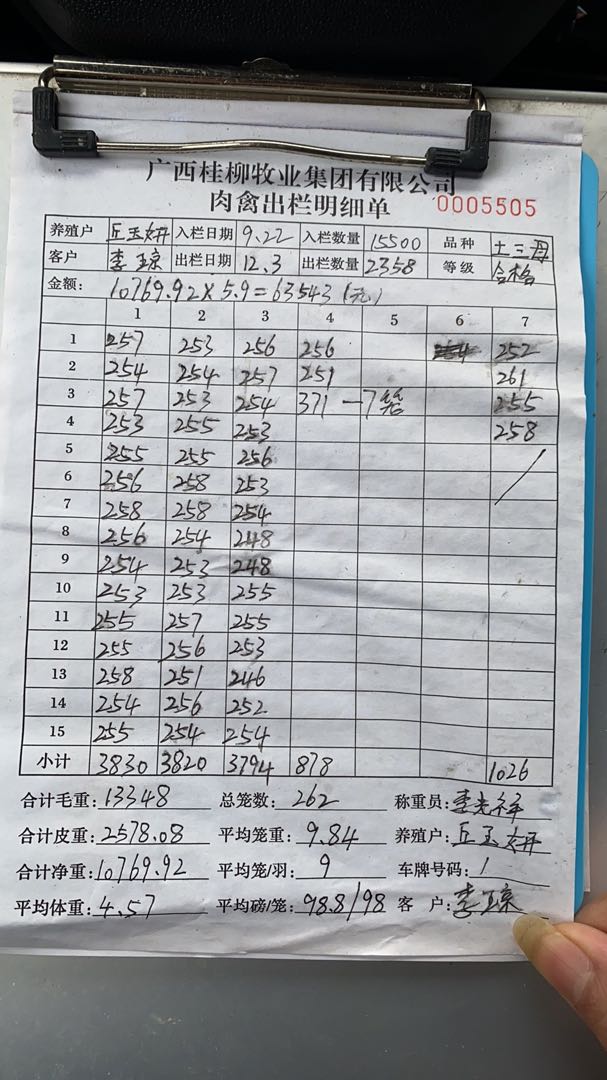 广西桂柳牧业集团有限公司
肉禽出栏明细单 0005505
养殖户 丘玉妍 入栏日期 9.22 入栏数量 15500 品种 土三丹
客户 李琼 出栏日期 12.3 出栏数量 2358 等级 合格
金额: 10769.92×5.9=63543(元)
1 2 3 4 5 6 7
1 257 253 256 256 252
2 254 254 257 251 261
3 257 253 254 371 —7笼 255
4 253 255 253 258
5 255 255 256
6 256 258 253
7 258 258 254
8 256 254 248
9 254 253 248
10 253 253 255
11 255 257 255
12 255 256 253
13 258 251 246
14 254 256 252
15 255 254 254
小计 3830 3820 3794 878 1026
合计毛重: 13348 总笼数: 262 称重员: 李光祥
合计皮重: 2578.08 平均笼重: 9.84 养殖户: 丘玉妍
合计净重: 10769.92 平均笼/羽: 9 车牌号码: /
平均体重: 4.57 平均磅/笼: 98.8/98 客户: 李琼